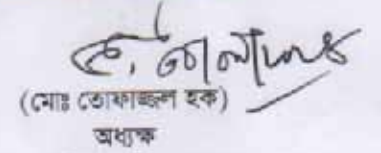 (মোঃ তোফাজ্জল হক)
অধ্যক্ষ